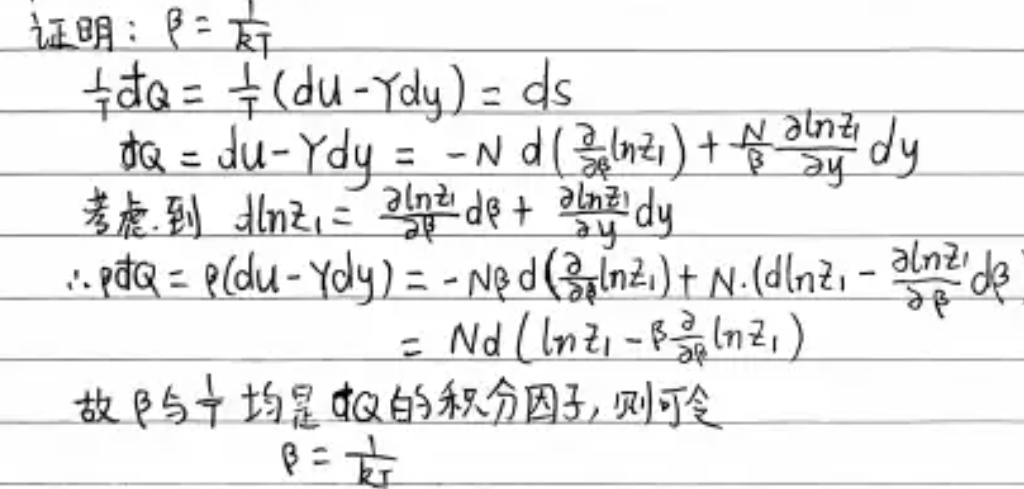 证明: β = 1/kT
1/T đQ = 1/T (dU - Ydy) = dS
đQ = dU - Ydy = -N d(∂/∂β lnZ₁) + N/β ∂lnZ₁/∂y dy
考虑到 dlnZ₁ = ∂lnZ₁/∂β dβ + ∂lnZ₁/∂y dy
∴ βđQ = β(dU - Ydy) = -Nβ d(∂/∂β lnZ₁) + N·(dlnZ₁ - ∂lnZ₁/∂β dβ)
= Nd(lnZ₁ - β ∂/∂β lnZ₁)
故 β与 1/T 均是 đQ 的积分因子, 则可令
β = 1/kT